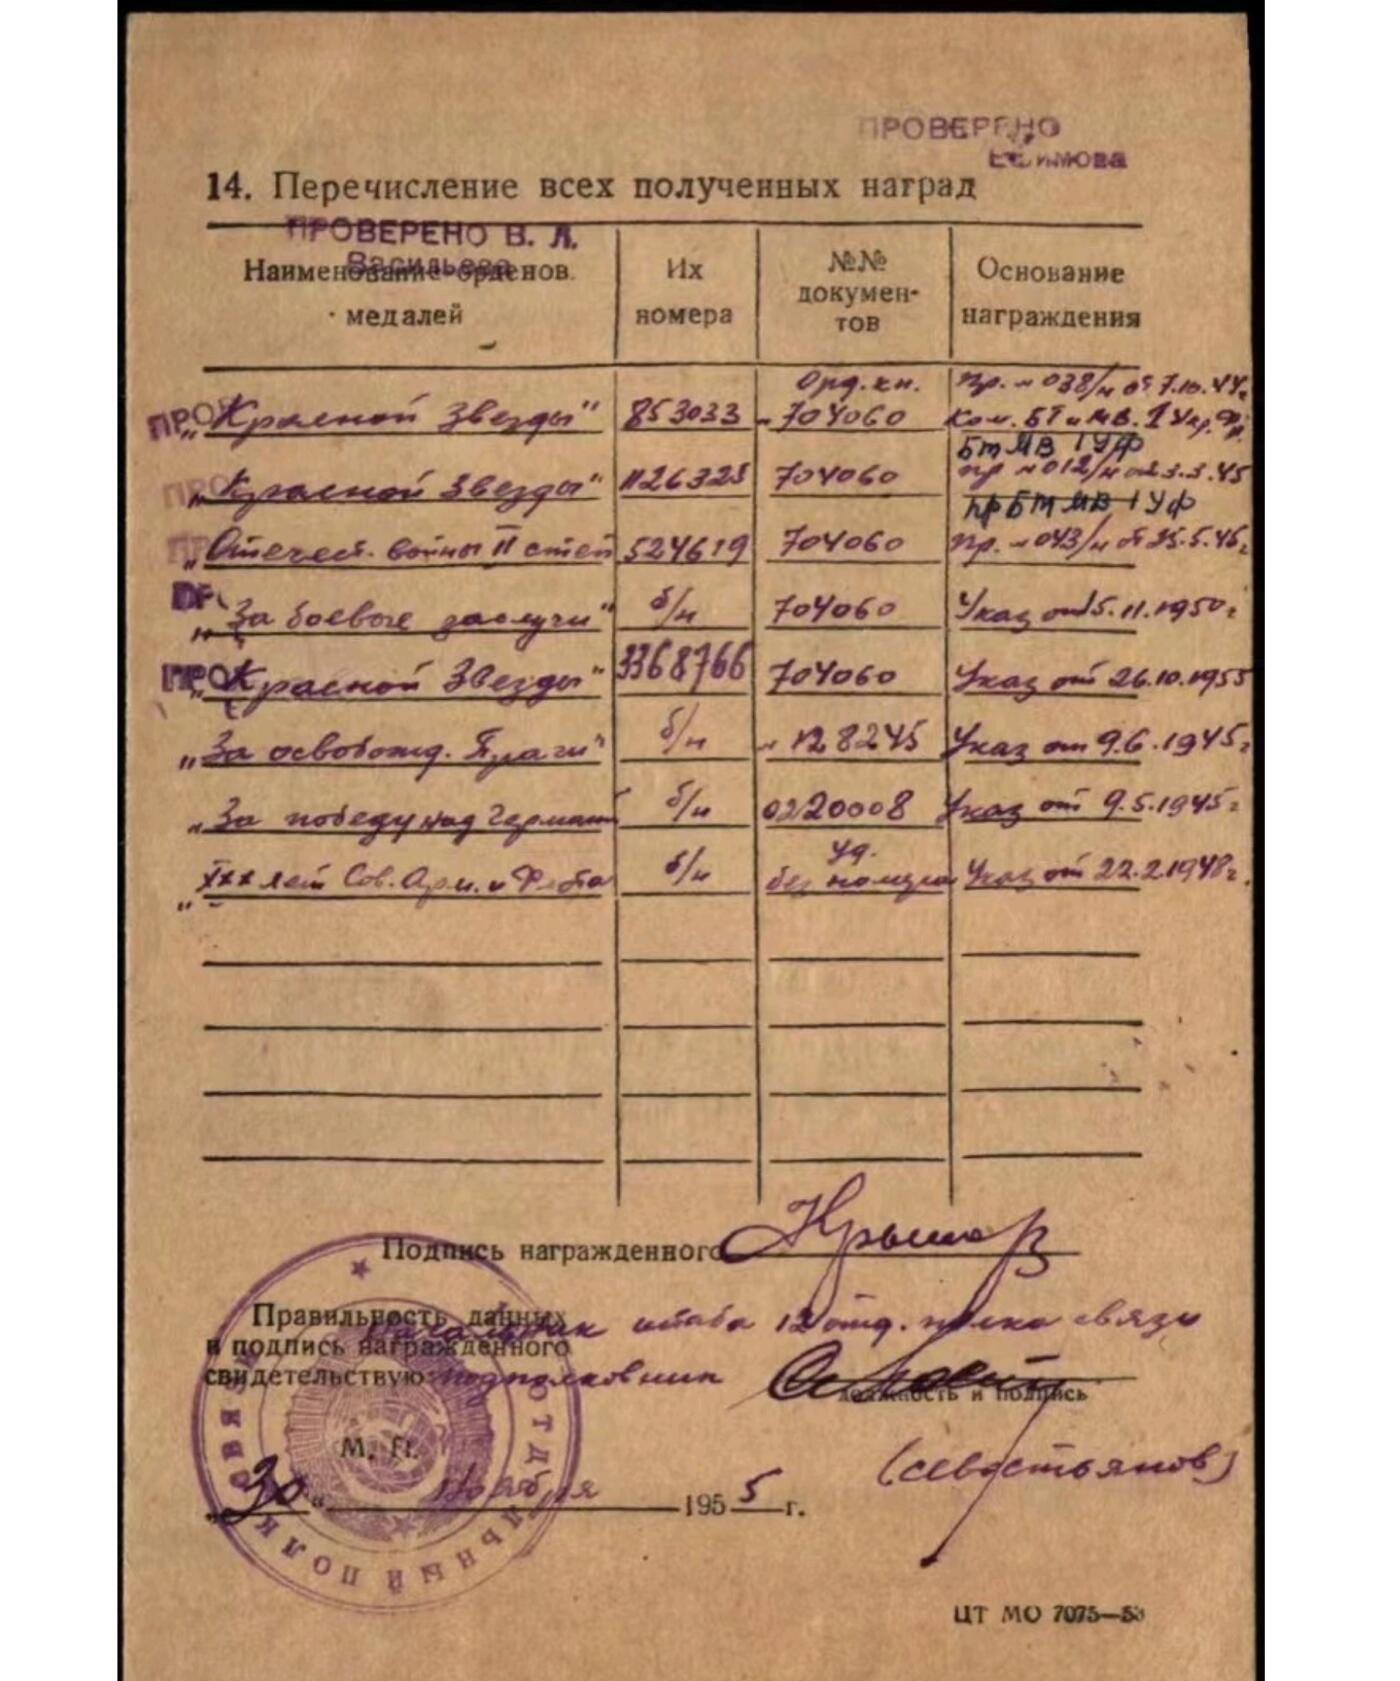 ПРОВЕРЕНО
Ефимова
14. Перечисление всех полученных наград
ПРОВЕРЕНО В. Л.
Васильева
Наименование орденов медалей
Их номера
№№ документов
Основание награждения
„Красной Звезды" 853033 Орд. кн. 704060 Пр. № 038/н от 7.10.44г. Ком. БТ и МВ. 1 Укр. Фр.
БТ МВ 1 УФ
„Красной Звезды" 1126325 704060 пр № 012/н от 3.3.45
пр БТ МВ 1 УФ
„Отечест. войны II степ 524619 704060 Пр. № 043/н от 25.5.45г
„За боевые заслуги" б/н 704060 Указ от 15.11.1950г
„Красной Звезды" 3368766 704060 Указ от 26.10.1955
„За освобожд. Праги" б/н № 128245 Указ от 9.6.1945г
„За победу над Герман б/н 0220008 Указ от 9.5.1945г
„XXX лет Сов. Арм. и Флота б/н уд. без номера Указ от 22.2.1948г.
Подпись награжденного
Правильность данных
и подпись награжденного
свидетельствую
Начальник штаба 12 отд. полка связи
подполковник
должность и подпись
М. П.
(Севостьянов)
„30" Ноября 1955 г.
ОТДЕЛЬНЫЙ ПОЛК СВЯЗИ
ЦТ МО 7075—53